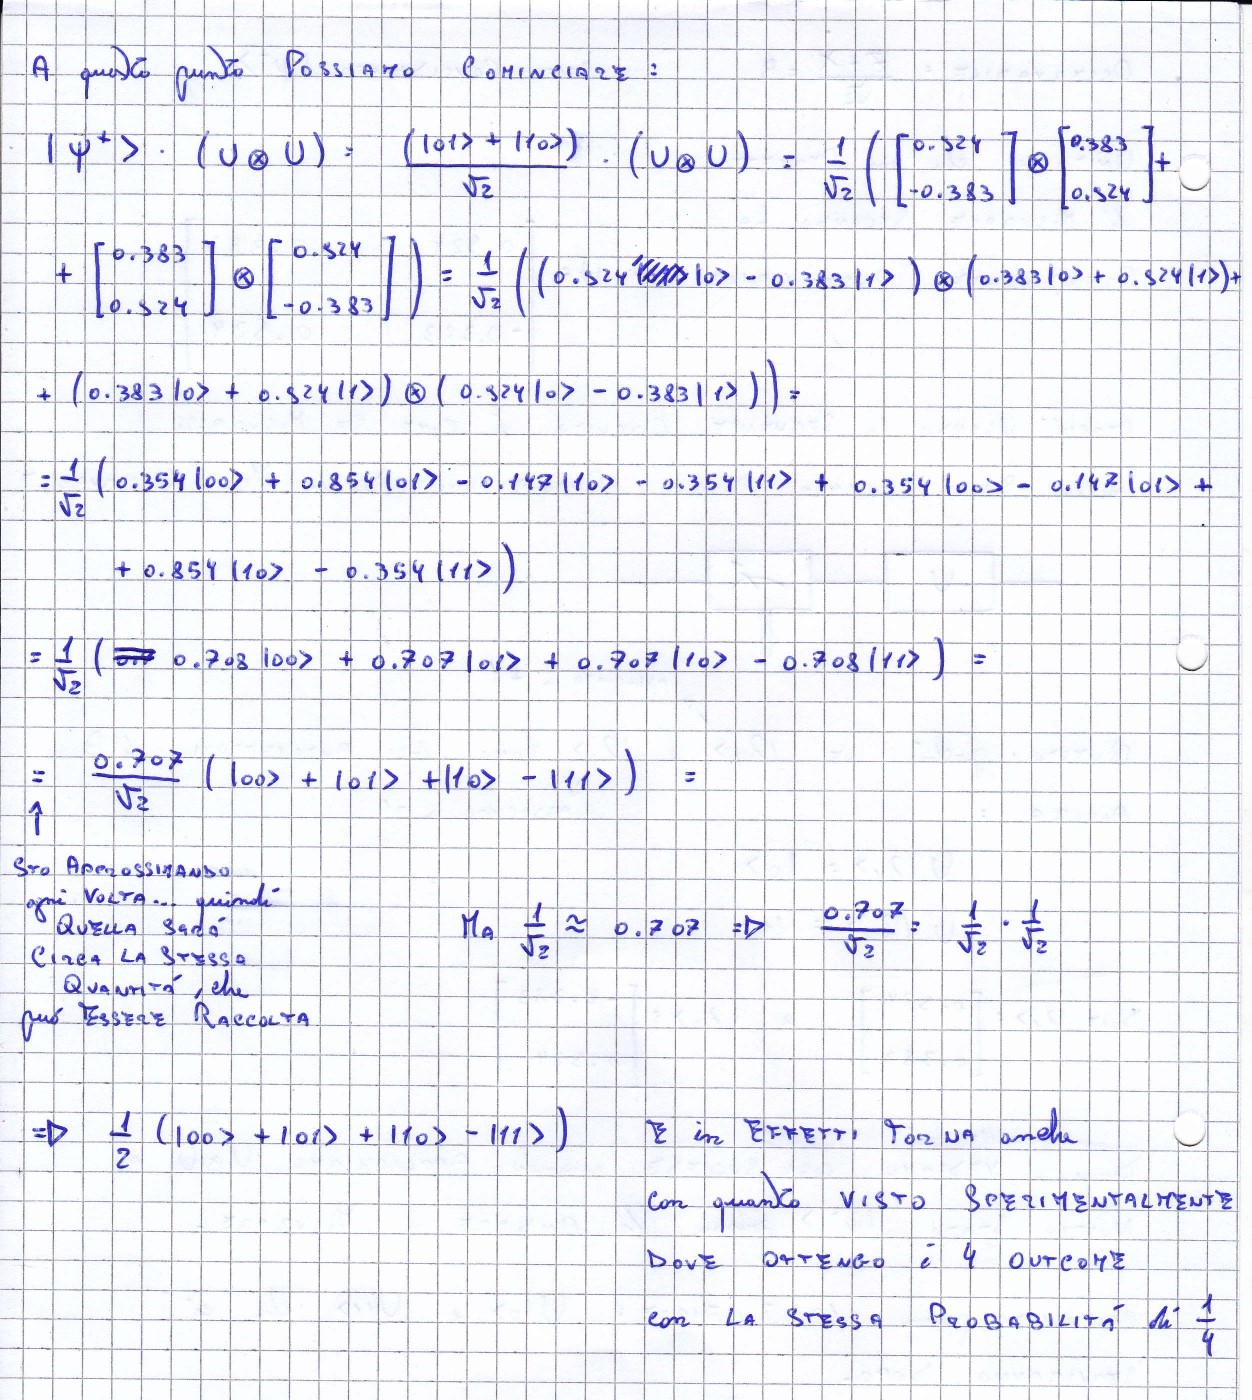 A questo punto POSSIAMO COMINCIARE :
|ψ⁺> · (U ⊗ U) = (|01> + |10>)/√2 · (U ⊗ U) = 1/√2 ([0.924 -0.383] ⊗ [0.383 0.924] +
+ [0.383 0.924] ⊗ [0.924 -0.383]) = 1/√2 ((0.924 |0> - 0.383|1>) ⊗ (0.383|0> + 0.924|1>) +
+ (0.383|0> + 0.924|1>) ⊗ (0.924|0> - 0.383|1>)) =
= 1/√2 (0.354|00> + 0.854|01> - 0.147|10> - 0.354|11> + 0.354|00> - 0.147|01> +
+ 0.854|10> - 0.354|11>)
= 1/√2 (0.708|00> + 0.707|01> + 0.707|10> - 0.708|11>) =
= 0.707/√2 (|00> + |01> + |10> - |11>) =
↑
STO APPROSSIMANDO
ogni VOLTA... quindi
QUELLA SARÁ
CIRCA LA STESSA
QUANTITÁ, che
puó ESSERE RACCOLTA
MA 1/√2 ≈ 0.707 => 0.707/√2 = 1/√2 · 1/√2
=> 1/2 (|00> + |01> + |10> - |11>)
E in EFFETTI TORNA anche
con quanto VISTO SPERIMENTALMENTE
DOVE OTTENGO i 4 OUTCOME
con LA STESSA PROBABILITÁ di 1/4